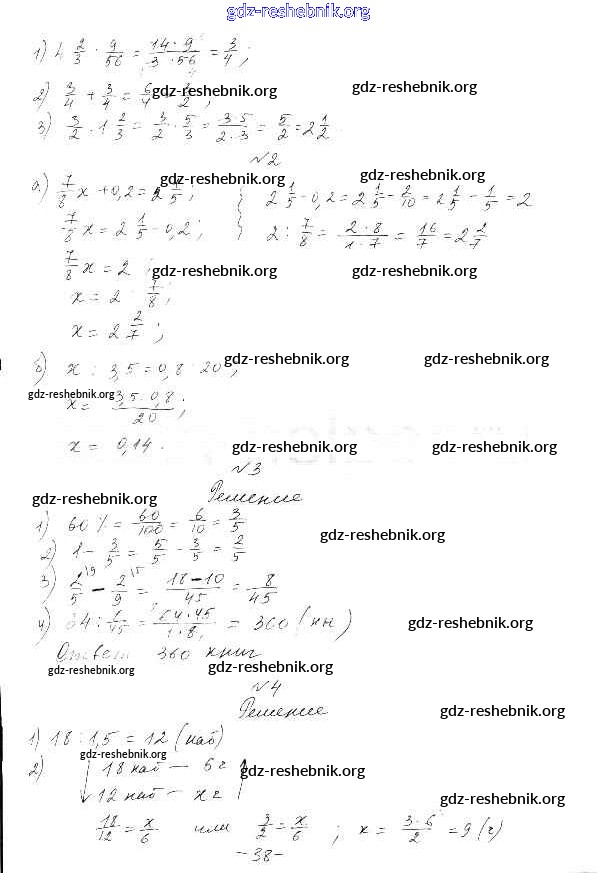 gdz-reshebnik.org
1) 4 2/3 · 9/56 = 14·9/3·56 = 3/4;
gdz-reshebnik.org gdz-reshebnik.org
2) 3/4 + 3/4 = 6/4
3) 3/2 · 1 2/3 = 3/2 · 5/3 = 3·5/2·3 = 5/2 = 2 1/2
№2
gdz-reshebnik.org gdz-reshebnik.org
а) 7/8 x + 0,2 = 2 1/5; } 2 1/5 - 0,2 = 2 1/5 - 2/10 = 2 1/5 - 1/5 = 2
7/8 x = 2 1/5 - 0,2; } 2 : 7/8 = 2·8/1·7 = 16/7 = 2 2/7
7/8 x = 2;
gdz-reshebnik.org gdz-reshebnik.org
x = 2 : 7/8;
x = 2 2/7;
gdz-reshebnik.org gdz-reshebnik.org
б) x : 3,5 = 0,8 : 20;
gdz-reshebnik.org
x = 3,5·0,8/20;
x = 0,14.
gdz-reshebnik.org gdz-reshebnik.org
№3
Решение
gdz-reshebnik.org
1) 60% = 60/100 = 6/10 = 3/5
gdz-reshebnik.org
2) 1 - 3/5 = 5/5 - 3/5 = 2/5
3) 2/5 \9 - 2/9 \5 = 18-10/45 = 8/45
4) 64 : 8/45 = 64·45/1·8 = 360 (кн)
gdz-reshebnik.org
Ответ 360 книг
gdz-reshebnik.org gdz-reshebnik.org
№4
Решение
gdz-reshebnik.org
1) 18 : 1,5 = 12 (наб)
gdz-reshebnik.org
2) 18 наб — 6 г
gdz-reshebnik.org
12 наб — x г
gdz-reshebnik.org
18/12 = x/6 или 3/2 = x/6; x = 3·6/2 = 9 (г)
-38-